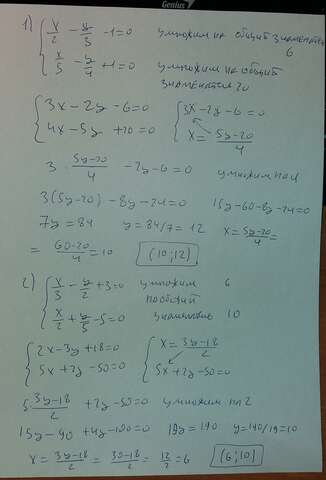 Genius
1) { x/2 - y/3 - 1 = 0 умножим на общий знаменатель 6
x/5 - y/4 + 1 = 0 умножим на общий знаменатель 20
{ 3x - 2y - 6 = 0 { 3x - 2y - 6 = 0
4x - 5y + 20 = 0 x = (5y-20)/4
3 · (5y-20)/4 - 2y - 6 = 0 умножим на 4
3(5y-20) - 8y - 24 = 0 15y - 60 - 8y - 24 = 0
7y = 84 y = 84/7 = 12 x = (5y-20)/4 =
= (60-20)/4 = 10 (10; 12)
2) { x/3 - y/2 + 3 = 0 умножим 6
на общий
x/2 + y/5 - 5 = 0 знаменатель 10
{ 2x - 3y + 18 = 0 { x = (3y-18)/2
5x + 2y - 50 = 0 5x + 2y - 50 = 0
5 · (3y-18)/2 + 2y - 50 = 0 умножим на 2
15y - 90 + 4y - 100 = 0 19y = 190 y = 190/19 = 10
x = (3y-18)/2 = (30-18)/2 = 12/2 = 6 (6; 10)